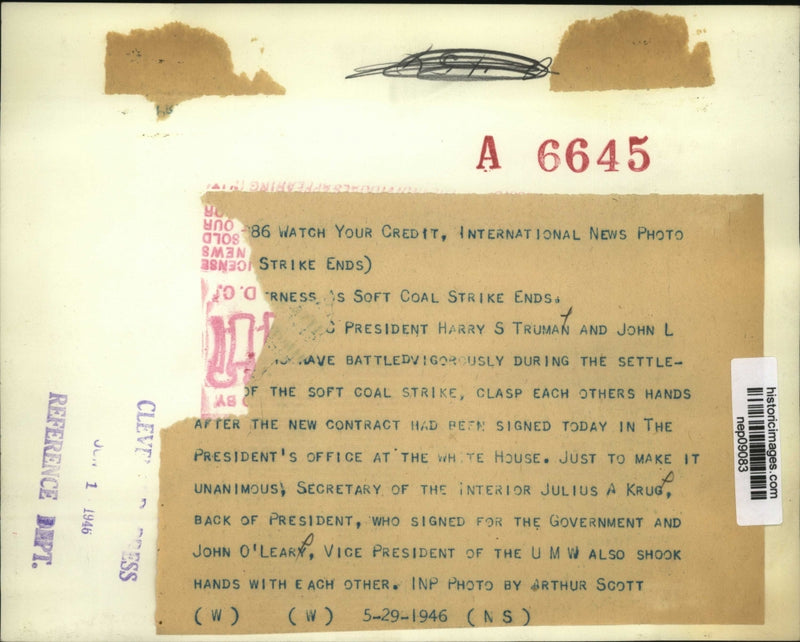 A 6645
86 WATCH YOUR CREDIT, INTERNATIONAL NEWS PHOTO
STRIKE ENDS)
ERNESS AS SOFT COAL STRIKE ENDS.
C PRESIDENT HARRY S TRUMAN AND JOHN L
HAVE BATTLEDVIGOROUSLY DURING THE SETTLE-
OF THE SOFT COAL STRIKE, CLASP EACH OTHERS HANDS
AFTER THE NEW CONTRACT HAD BEEN SIGNED TODAY IN THE
PRESIDENT'S OFFICE AT THE WHITE HOUSE. JUST TO MAKE IT
UNANIMOUS, SECRETARY OF THE INTERIOR JULIUS A KRUG,
BACK OF PRESIDENT, WHO SIGNED FOR THE GOVERNMENT AND
JOHN O'LEARY, VICE PRESIDENT OF THE U M W ALSO SHOOK
HANDS WITH EACH OTHER. INP PHOTO BY ARTHUR SCOTT
(W) (W) 5-29-1946 (NS)
OUR
SOLD
NEWS
LICENSE
D.C.
BY
CLEVE PRESS
1 1946
REFERENCE DEPT.
historicimages.com
nep09083